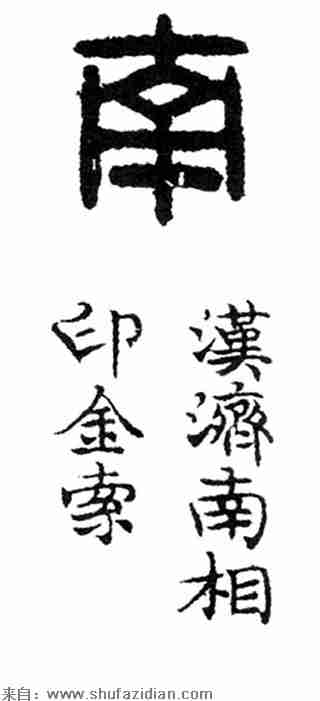 南
漢濟南相
印金索
来自：www.shufazidian.com